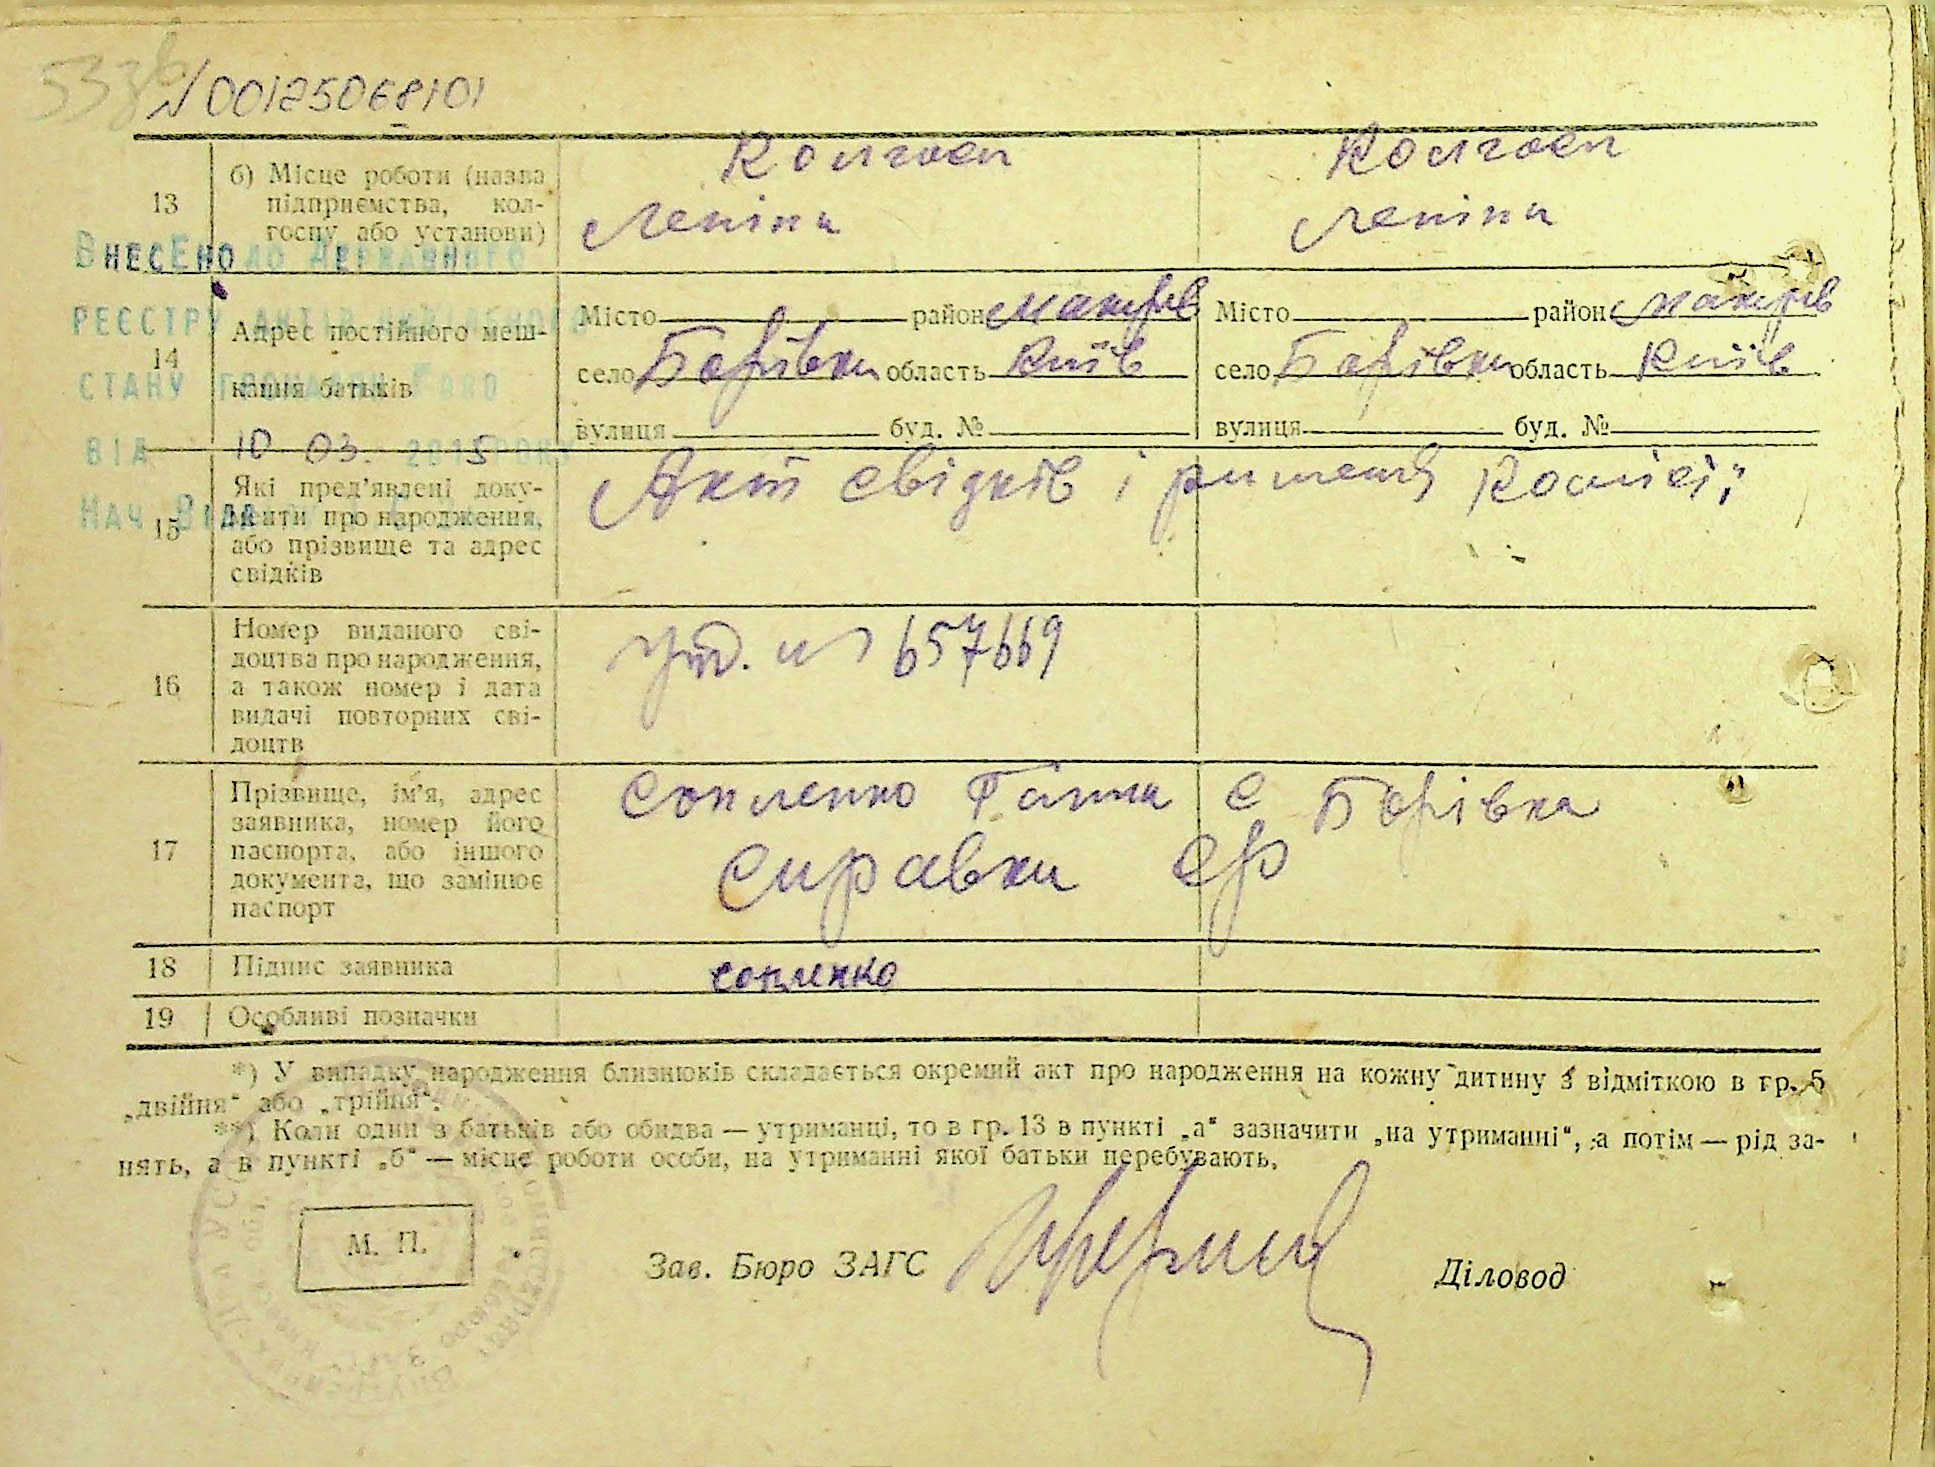 №00125068101
13
б) Місце роботи (назва
підприємства, кол-
госпу або установи)
Колгосп
Леніна
Колгосп
Леніна
Внесено до Державного
реєстру актів цивільного
стану громадян
від 10 03. 2015 року
Нач. відділу
14
Адрес постійного меш-
кання батьків
Місто район Макарів
село Борівка область Київ
вулиця буд. №
Місто район Макарів
село Борівка область Київ
вулиця буд. №
15
Які пред'явлені доку-
менти про народження,
або прізвище та адрес
свідків
Акт свідків і рішення Комісії
16
Номер виданого сві-
доцтва про народження,
а також номер і дата
видачі повторних сві-
доцтв
657669
17
Прізвище, ім'я, адрес
заявника, номер його
паспорта, або іншого
документа, що замінює
паспорт
Сопленко Ганна с Борівка
Справка ср
18
Підпис заявника
сопленко
19
Особливі позначки
*) У випадку народження близнюків складається окремий акт про народження на кожну дитину з відміткою в гр. 5
„двійня“ або „трійня“.
**) Коли один з батьків або обидва — утриманці, то в гр. 13 в пункті „а“ зазначити „на утриманні“, а потім — рід за-
нять, а в пункті „б“ — місце роботи особи, на утриманні якої батьки перебувають.
М. П.
Зав. Бюро ЗАГС
Діловод